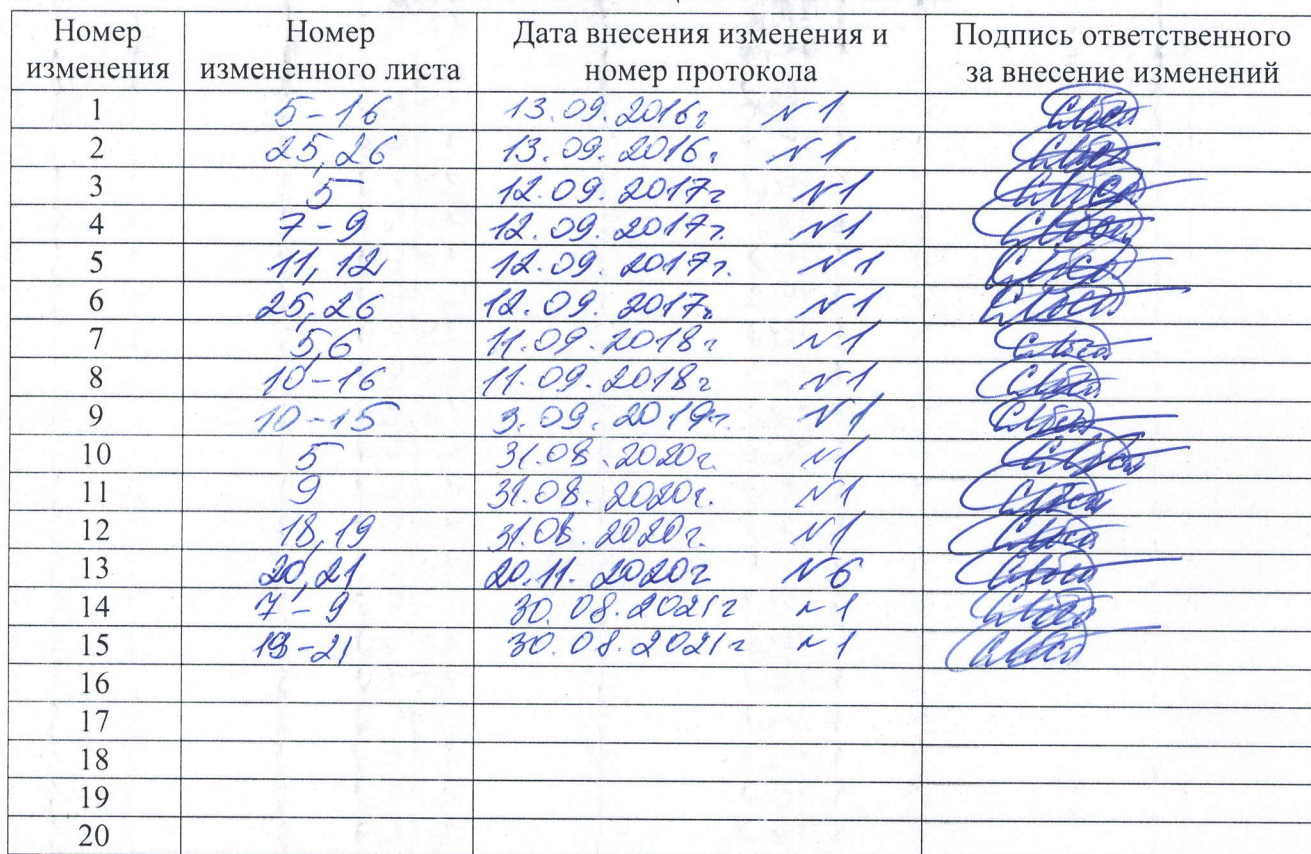 Номер изменения Номер измененного листа Дата внесения изменения и номер протокола Подпись ответственного за внесение изменений
1 5-16 13.09.2016г N1
2 25,26 13.09.2016г N1
3 5 12.09.2017г N1
4 7-9 12.09.2017г. N1
5 11,12 12.09.2017г. N1
6 25,26 12.09.2017г. N1
7 5,6 11.09.2018г N1
8 10-16 11.09.2018г N1
9 10-15 3.09.2019г. N1
10 5 31.08.2020г. N1
11 9 31.08.2020г. N1
12 18,19 31.08.2020г. N1
13 20,21 20.11.2020г N6
14 7-9 30.08.2021г N1
15 19-21 30.08.2021г N1
16
17
18
19
20